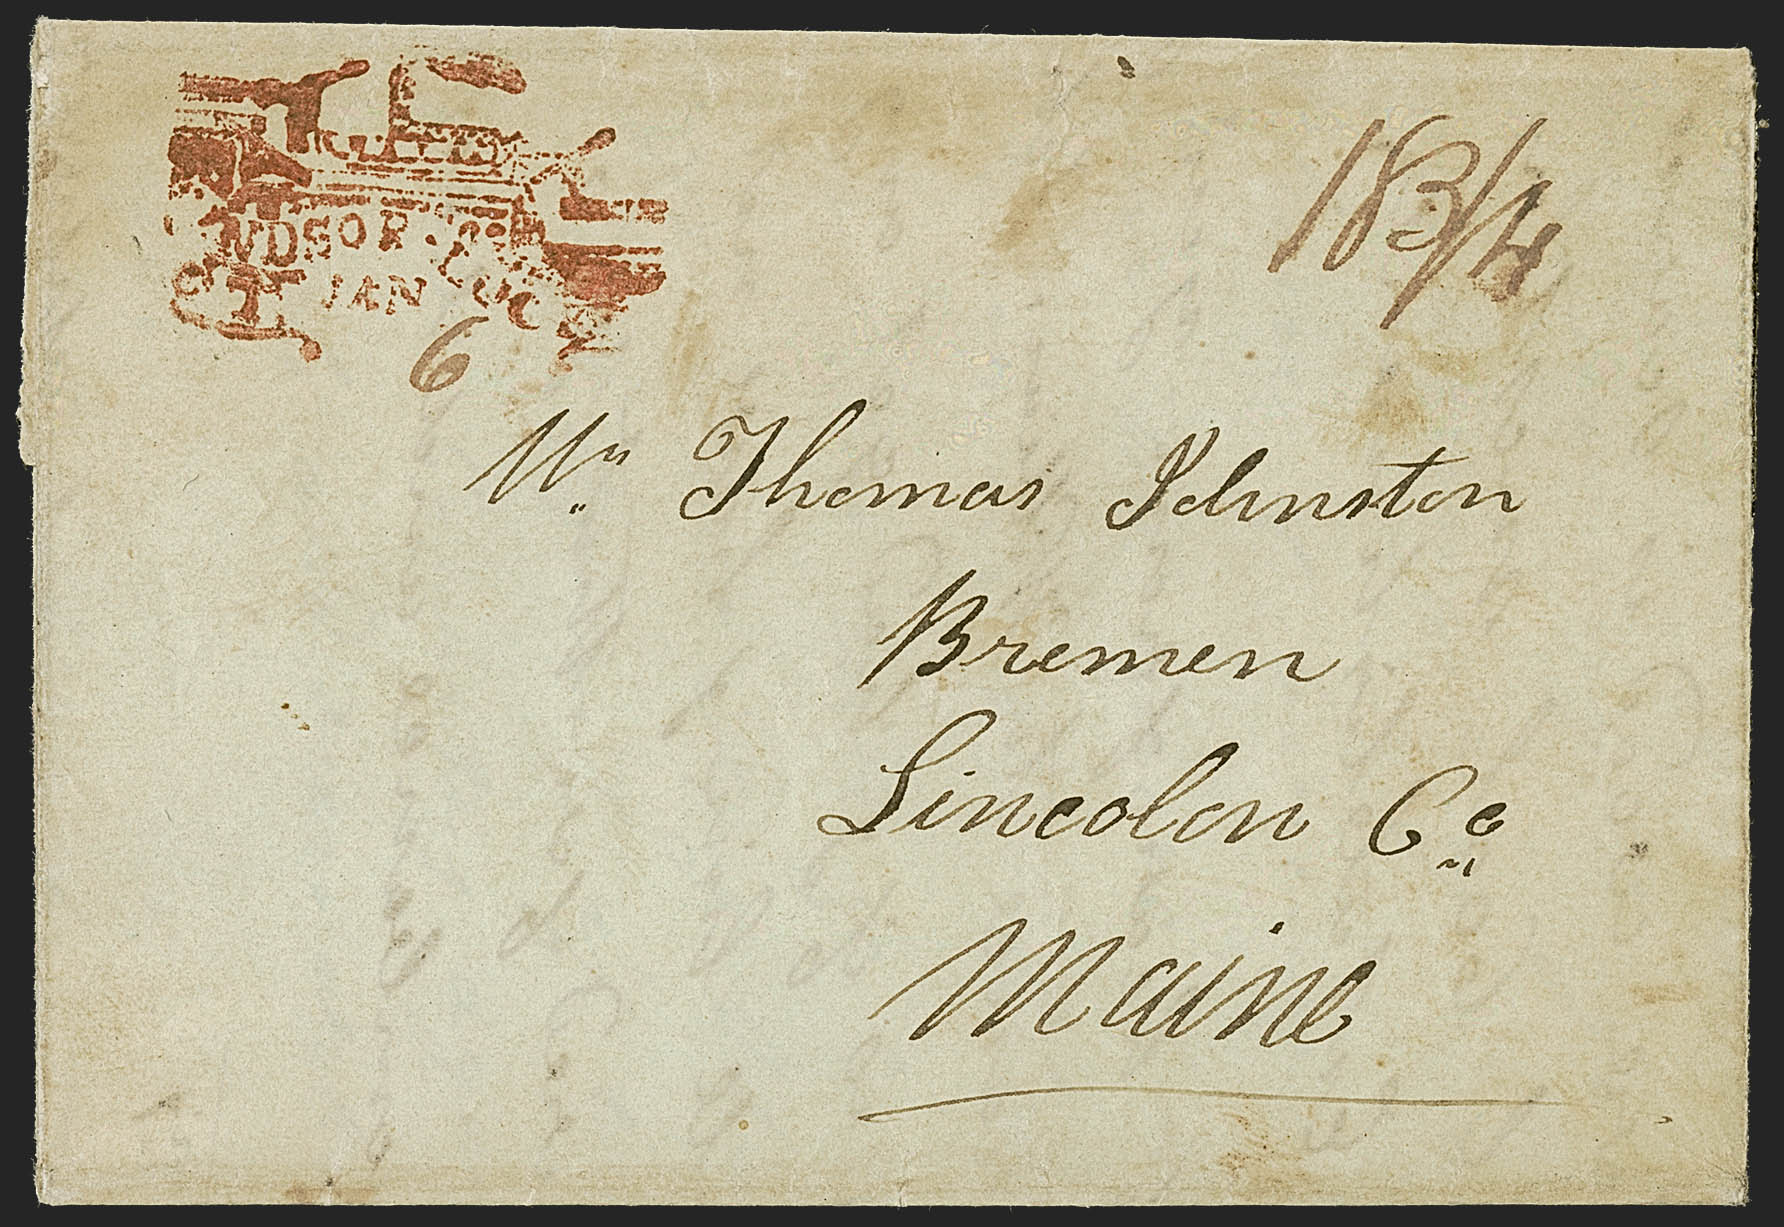 NDSOR
JAN
6
18 3/4
Mr. Thomas Johnston
Bremen
Lincoln Co
Maine